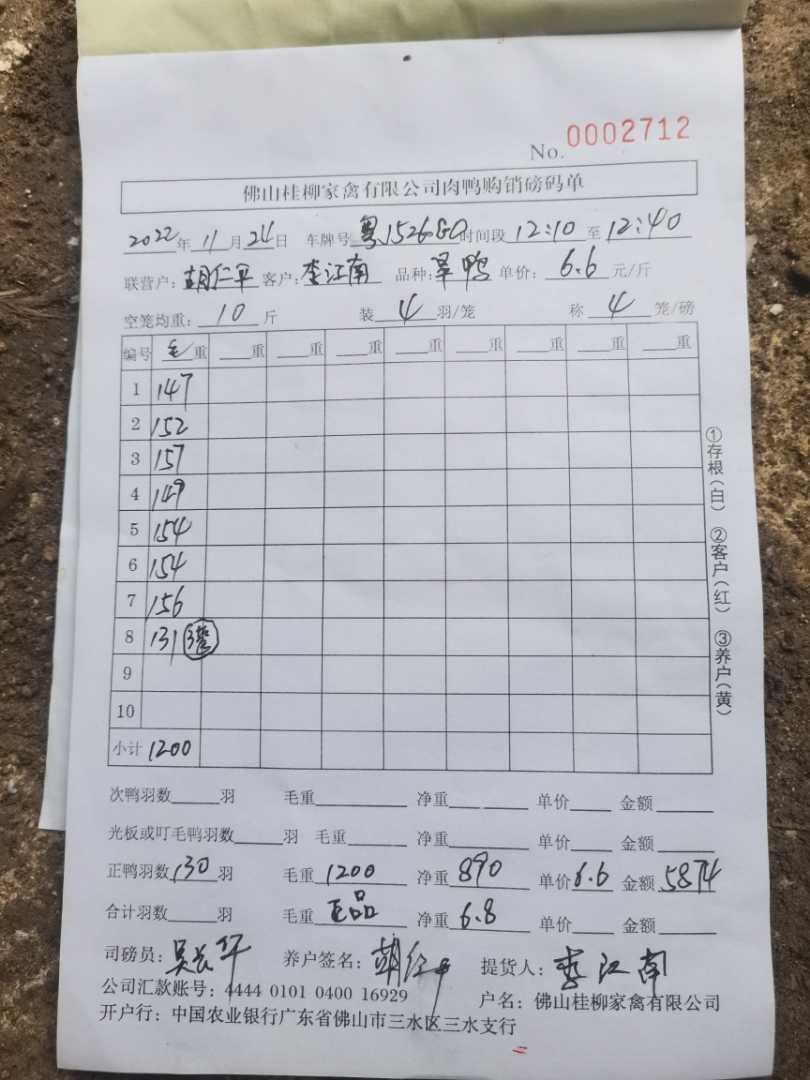 No. 0002712
佛山桂柳家禽有限公司肉鸭购销磅码单
2022年 11月 24日 车牌号 粤J526GQ 时间段 12:10 至 12:40
联营户: 胡仁平 客户: 李江南 品种: 旱鸭 单价: 6.6 元/斤
空笼均重: 10 斤 装 4 羽/笼 称 4 笼/磅
编号 毛重 重 重 重 重 重 重 重 重
1 147
2 152
3 157
4 149
5 154
6 154
7 156
8 131 3笼
9
10
小计 1200
①存根(白) ②客户(红) ③养户(黄)
次鸭羽数 羽 毛重 净重 单价 金额
光板或叮毛鸭羽数 羽 毛重 净重 单价 金额
正鸭羽数 130 羽 毛重 1200 净重 890 单价 6.6 金额 5874
合计羽数 羽 毛重 正品 净重 6.8 单价 金额
司磅员: 吴长华 养户签名: 胡仁平 提货人: 李江南
公司汇款账号: 4444 0101 0400 16929 户名: 佛山桂柳家禽有限公司
开户行: 中国农业银行广东省佛山市三水区三水支行